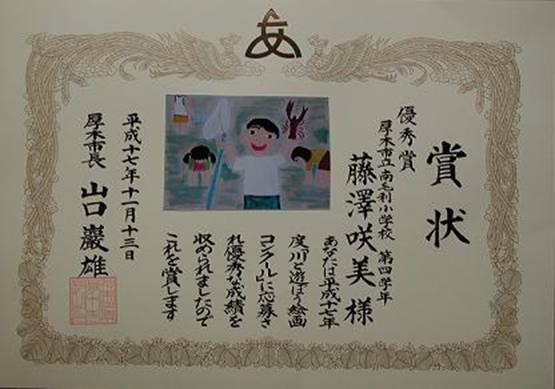 賞状
優秀賞
厚木市立南毛利小学校 第四学年
藤澤咲美様
あなたは平成十七年
度川と遊ぼう絵画
コンクールに応募さ
れ優秀な成績を
収められましたので
これを賞します
平成十七年十一月十三日
厚木市長 山口巖雄